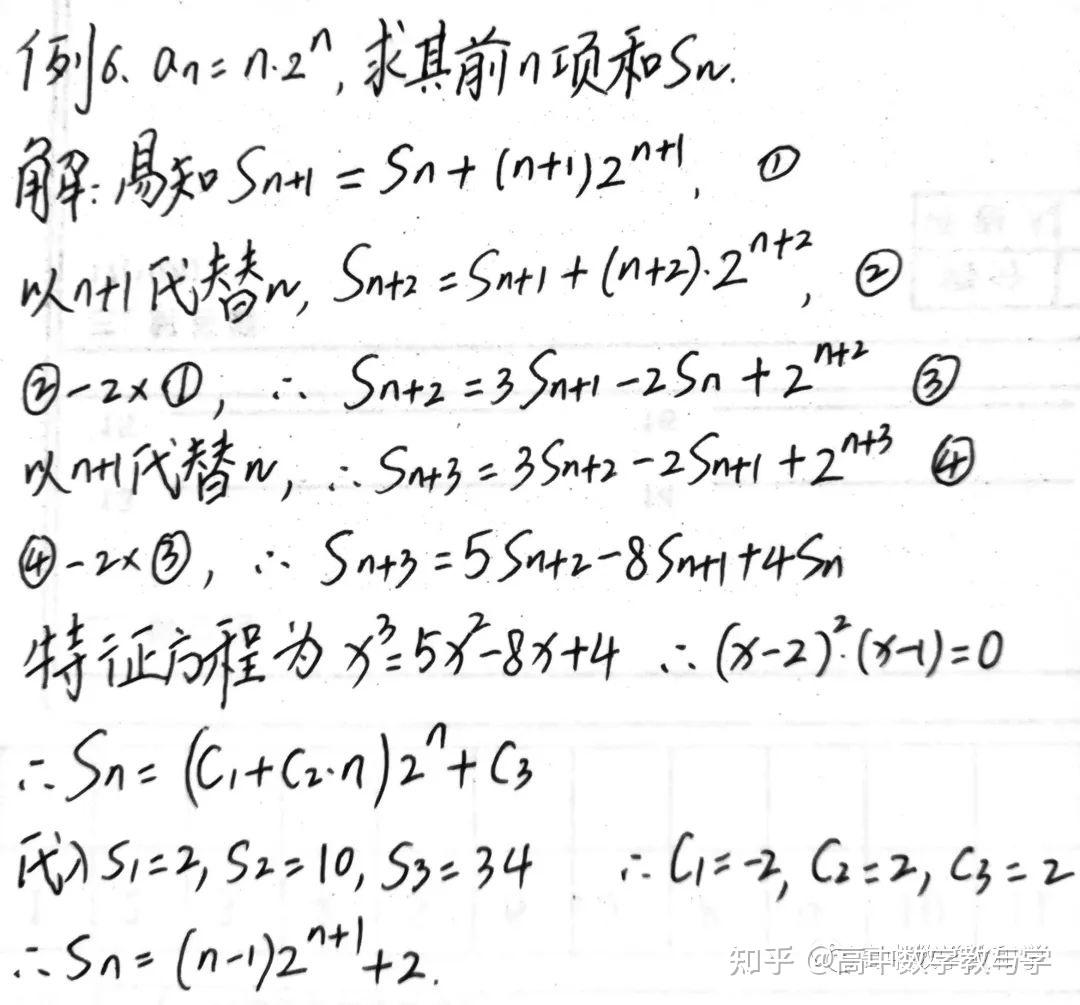 例6. aₙ = n·2ⁿ, 求其前n项和Sₙ.
解: 易知 Sₙ₊₁ = Sₙ + (n+1)2ⁿ⁺¹, ①
以n+1代替n, Sₙ₊₂ = Sₙ₊₁ + (n+2)·2ⁿ⁺², ②
②-2×①, ∴ Sₙ₊₂ = 3Sₙ₊₁ - 2Sₙ + 2ⁿ⁺² ③
以n+1代替n, ∴ Sₙ₊₃ = 3Sₙ₊₂ - 2Sₙ₊₁ + 2ⁿ⁺³ ④
④-2×③, ∴ Sₙ₊₃ = 5Sₙ₊₂ - 8Sₙ₊₁ + 4Sₙ
特征方程为 x³ = 5x² - 8x + 4 ∴ (x-2)²·(x-1) = 0
∴ Sₙ = (C₁ + C₂·n)2ⁿ + C₃
代入 S₁=2, S₂=10, S₃=34 ∴ C₁=-2, C₂=2, C₃=2
∴ Sₙ = (n-1)2ⁿ⁺¹ + 2.
知乎 @高中数学教与学